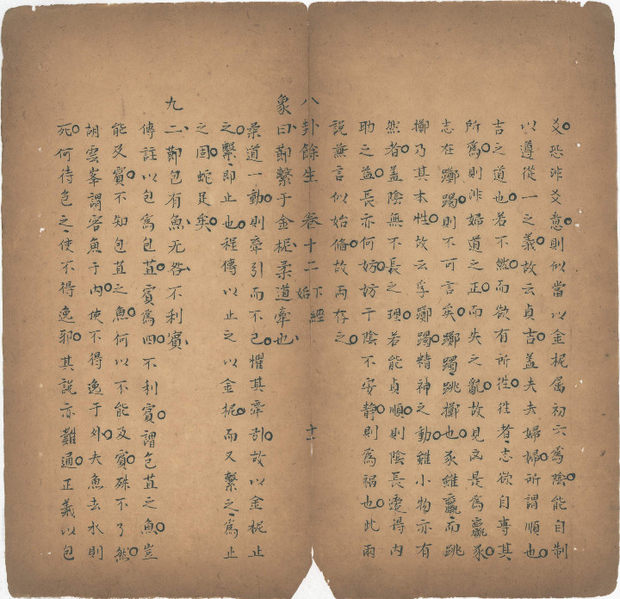 爻恐非爻意則似當以金柅屬初六為陰能自制
以遵從一之義故云貞吉蓋夫夫婦婦所謂順也
吉之道也若不然而欲有所徃徃者志欲自專其
所為則非姤道之正而失之亂故見凶是為羸豕
志在躑躅則不可言矣躑躅跳擲也豕雖羸而跳
擲乃其本性故云孚躑躅精神之動雖小物亦有
然者蓋陰無不長之理若能貞順則陰長還得內
助之益長亦何妨妨于陰不安静則為禍也此兩
說無言似始偹故两存之
八卦餘生 卷十二 下經 姤 十一
象曰繫于金柅柔道牽也
柔道一動則牽引而不已懼其牽引故以金柅止
之繫即止也程傳以止之以金柅而又繫之為止
之固蛇足矣
九二包有魚无咎不利賓
傳註以包為包苴賓為四不利賓謂包苴之魚豈
能及賓不知包苴之魚何以不能及賓殊不了然
胡雲峯謂容魚于內使不得逸于外夫魚去水則
死何待包之使不得逸邪其說亦難通正義以包